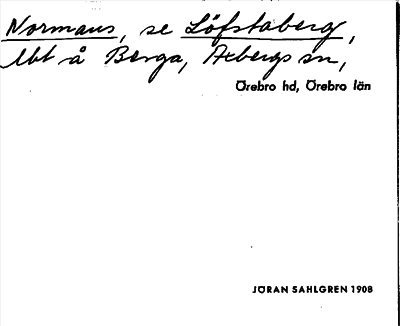 Normans, se Löfstaberg,
lbt å Berga, Axbergs sn,
Örebro hd, Örebro län
JÖRAN SAHLGREN 1908